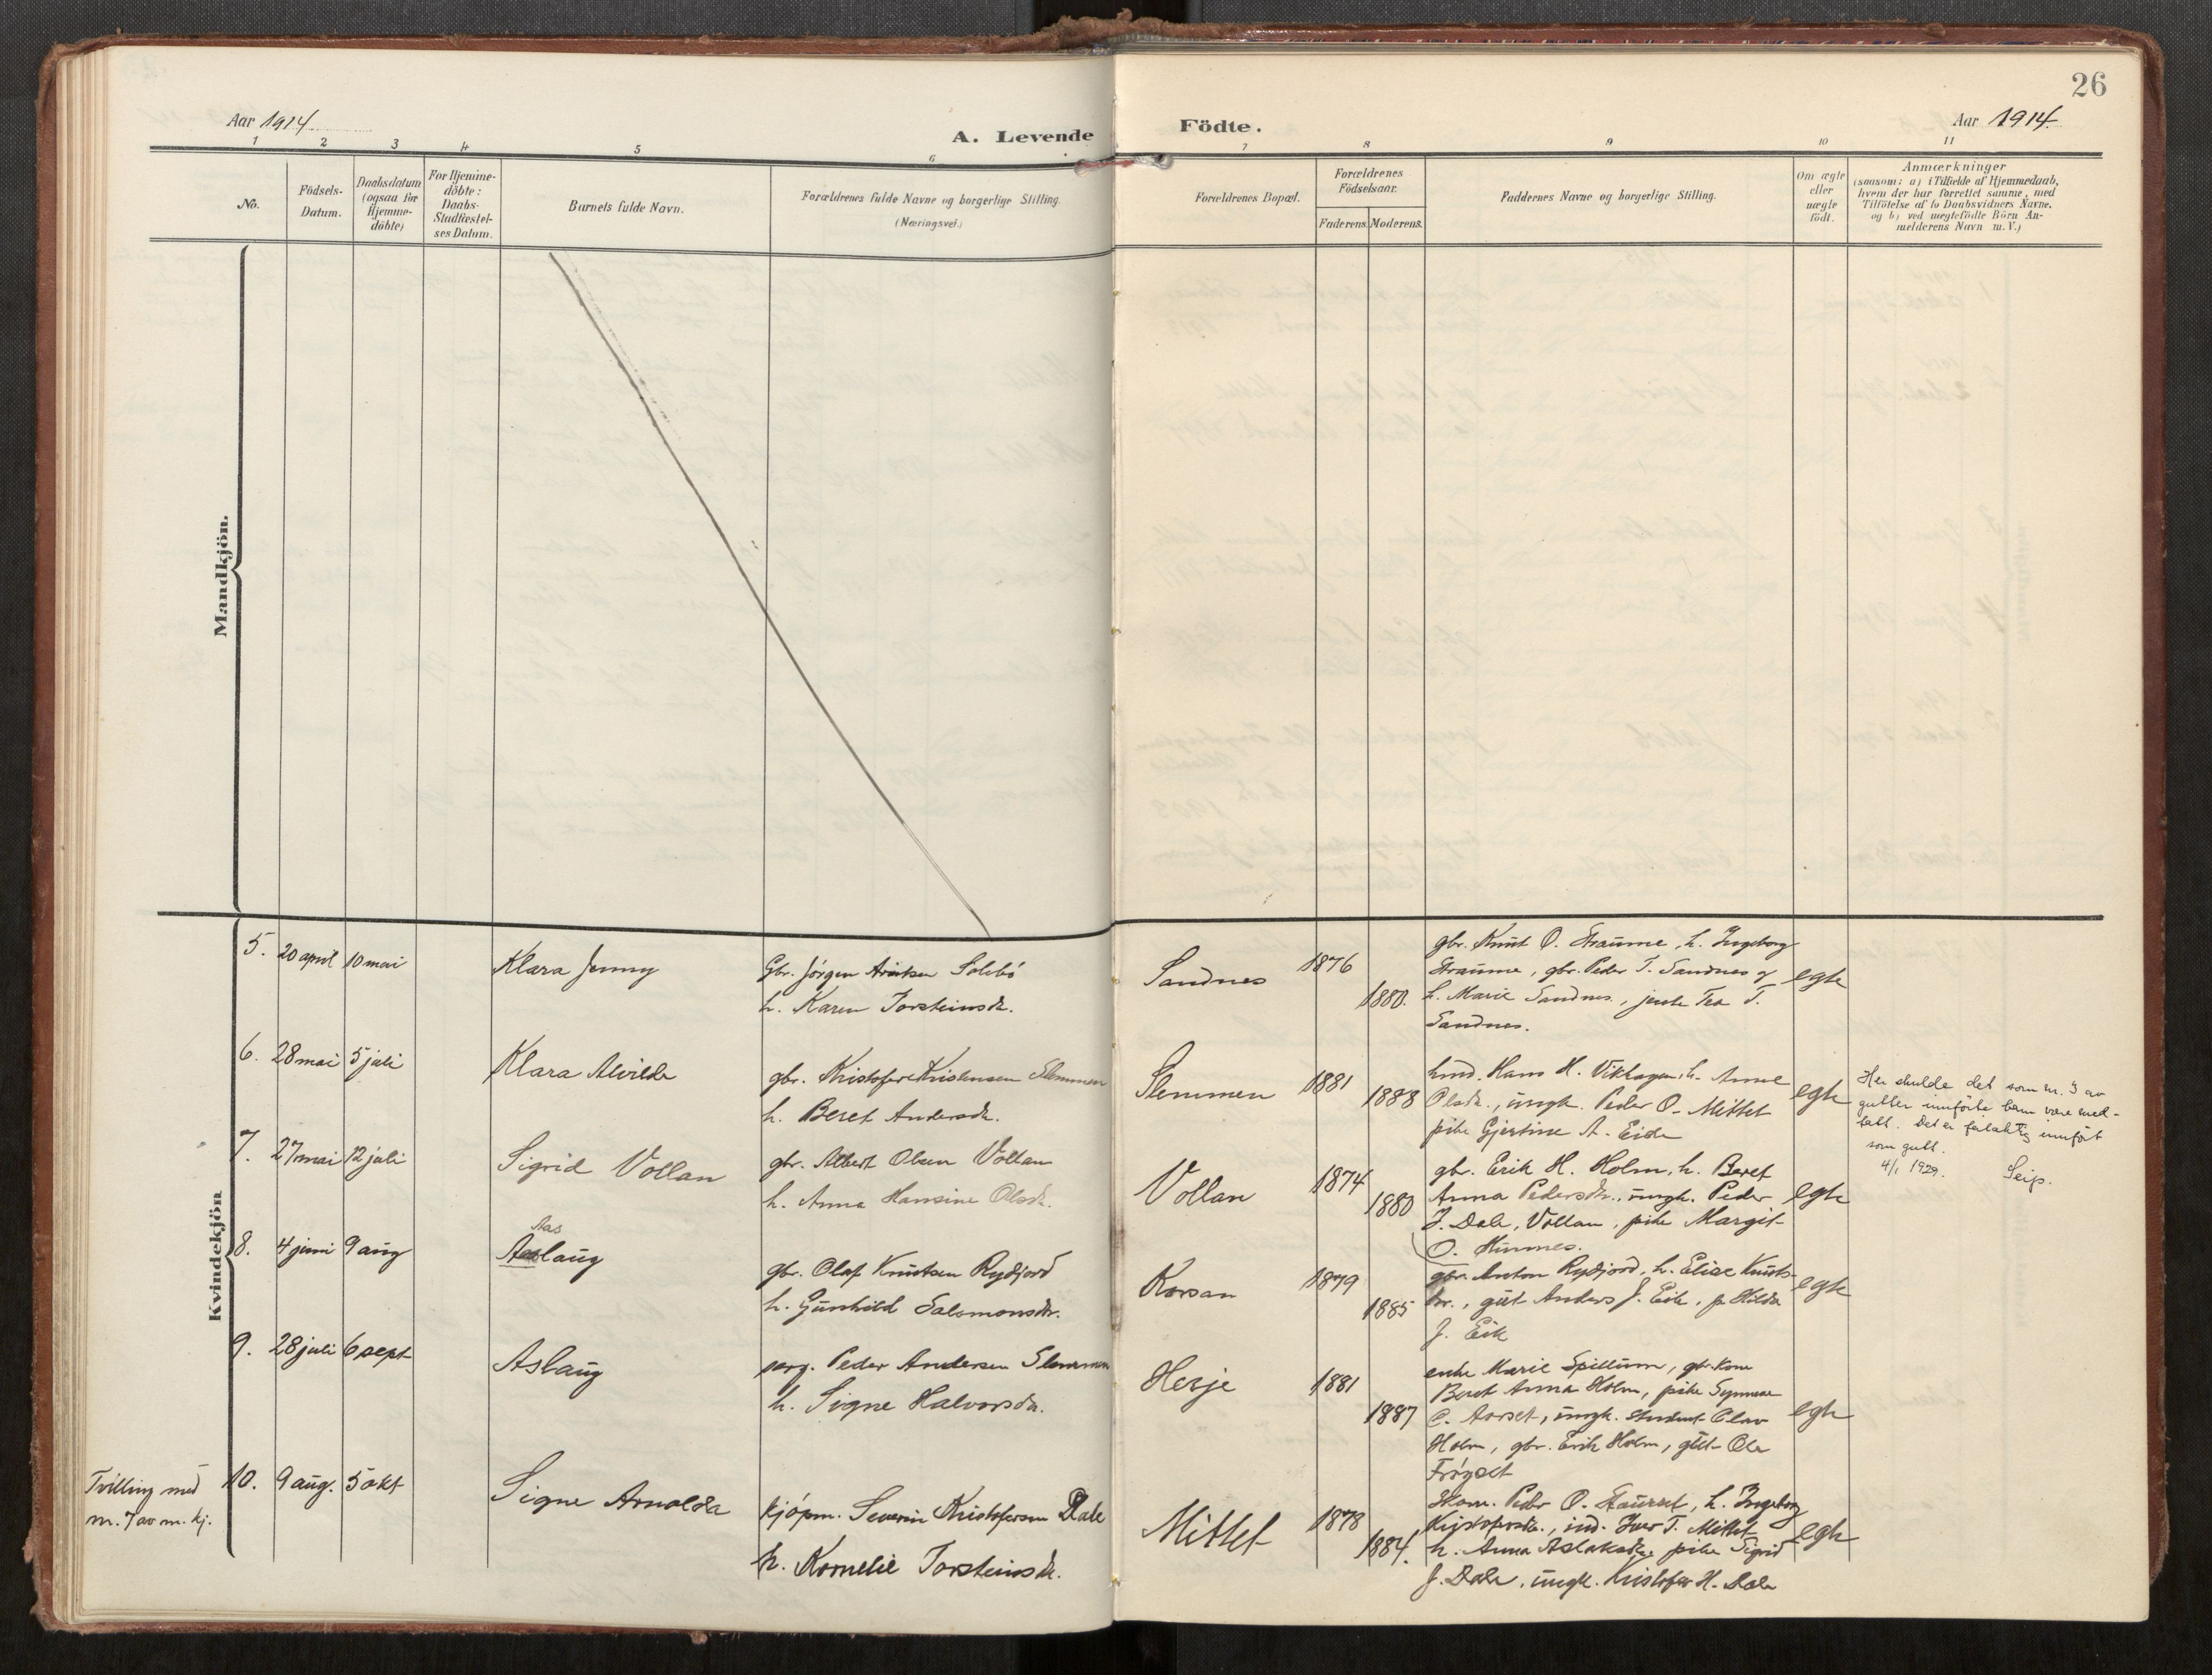 26
Aar 1914
A. Levende Födte.
Aar 1914.
1 2 3 4 5 6 7 8 9 10 11
No.
Födsels-
Datum.
Daabsdatum
(ogsaa for
Hjemme-
döbte)
For Hjemme-
döbte:
Daabs-
Stadfæstel-
ses Datum.
Barnets fulde Navn.
Forældrenes fulde Navne og borgerlige Stilling.
(Næringsvei.)
Forældrenes Bopæl.
Forældrenes
Födselsaar.
Faderens. Moderens.
Faddernes Navne og borgerlige Stilling.
Om ægte
eller
uægte
födt.
Anmærkninger
(saasom: a) i Tilfælde af Hjemmedaab,
hvem der har forrettet samme, med
Tilföielse af to Daabsvidners Navne.
og b) ved uægtefödte Börn An-
melderens Navn m.V.)
Mandkjön.
Kvindekjön
5. 20 april 10 mai Klara Jenny
Gbr. Jörgen Solebö
h. Karen Torsteinsdr.
Sandnes 1876 1880.
gbr. Knut O. Straume, h. Ingeborg
Straume, gbr. Peder T. Sandnes og
h. Marie Sandnes, jente Tea T.
Sandnes.
egte
6. 28 mai 5 juli Klara Alvilde
gbr. Kristofer Kristensen Slemmen
h. Beret Andersdr.
Slemmen 1881 1888
Hans H. Vikhagen, h. Anne
Olsdr., ungk. Peder O. Mittet
pike Gjertine A. Eide
egte
Her skulde det som nr. 3 av
gutter innförte barn vore med-
tatt. Det er feilaktig innfört
som gutt.
4/1 1929. Seip.
7. 27 mai 12 juli Sigrid Vollan
gbr. Albert Olsen Vollan
h. Anna Hansine Olsdr.
Vollan 1874 1880
gbr. Erik H. Holm, h. Beret
Anna Pedersdr., ungk. Peder
J. Dale, Vollan, pike Margit
O. Hunnes.
egte
8. 4 juni 9 aug Aslaug
Aas
gbr. Olaf Knutsen Rydjord
h. Gunhild Salomonsdr.
Korsan 1879 1885
gbr. Anton Rydjord, h. Elise Knuts-
dr., gut Anders J. Eik, p. Hilda
J. Eik
egte
9. 28 juli 6 sept Aslaug
Peder Andersen Slemmen
h. Signe Halvorsdr.
Herje 1881 1887
enke Marie Spillum, gbr. kone
Beret Anna Holm, pike Synneve
O. Aarset, ungk. student Olav
Holm, gbr. Erik Holm, gut Ole
Fröyset
egte
Tvilling med
nr. 7 av m. kj.
10. 9 aug. 5 okt Signe Arnolda
kjöpm. Severin Kristofersen Dale
h. Kornelie Torsteinsdr.
Mittet 1878 1884.
Skom. Peder O. h. Ingeborg
Kristofersdr., ind. Iver T. Mittet
h. Anna Aslaksdr. pike Sigrid
J. Dale, ungk. Kristofer H. Dale
egte